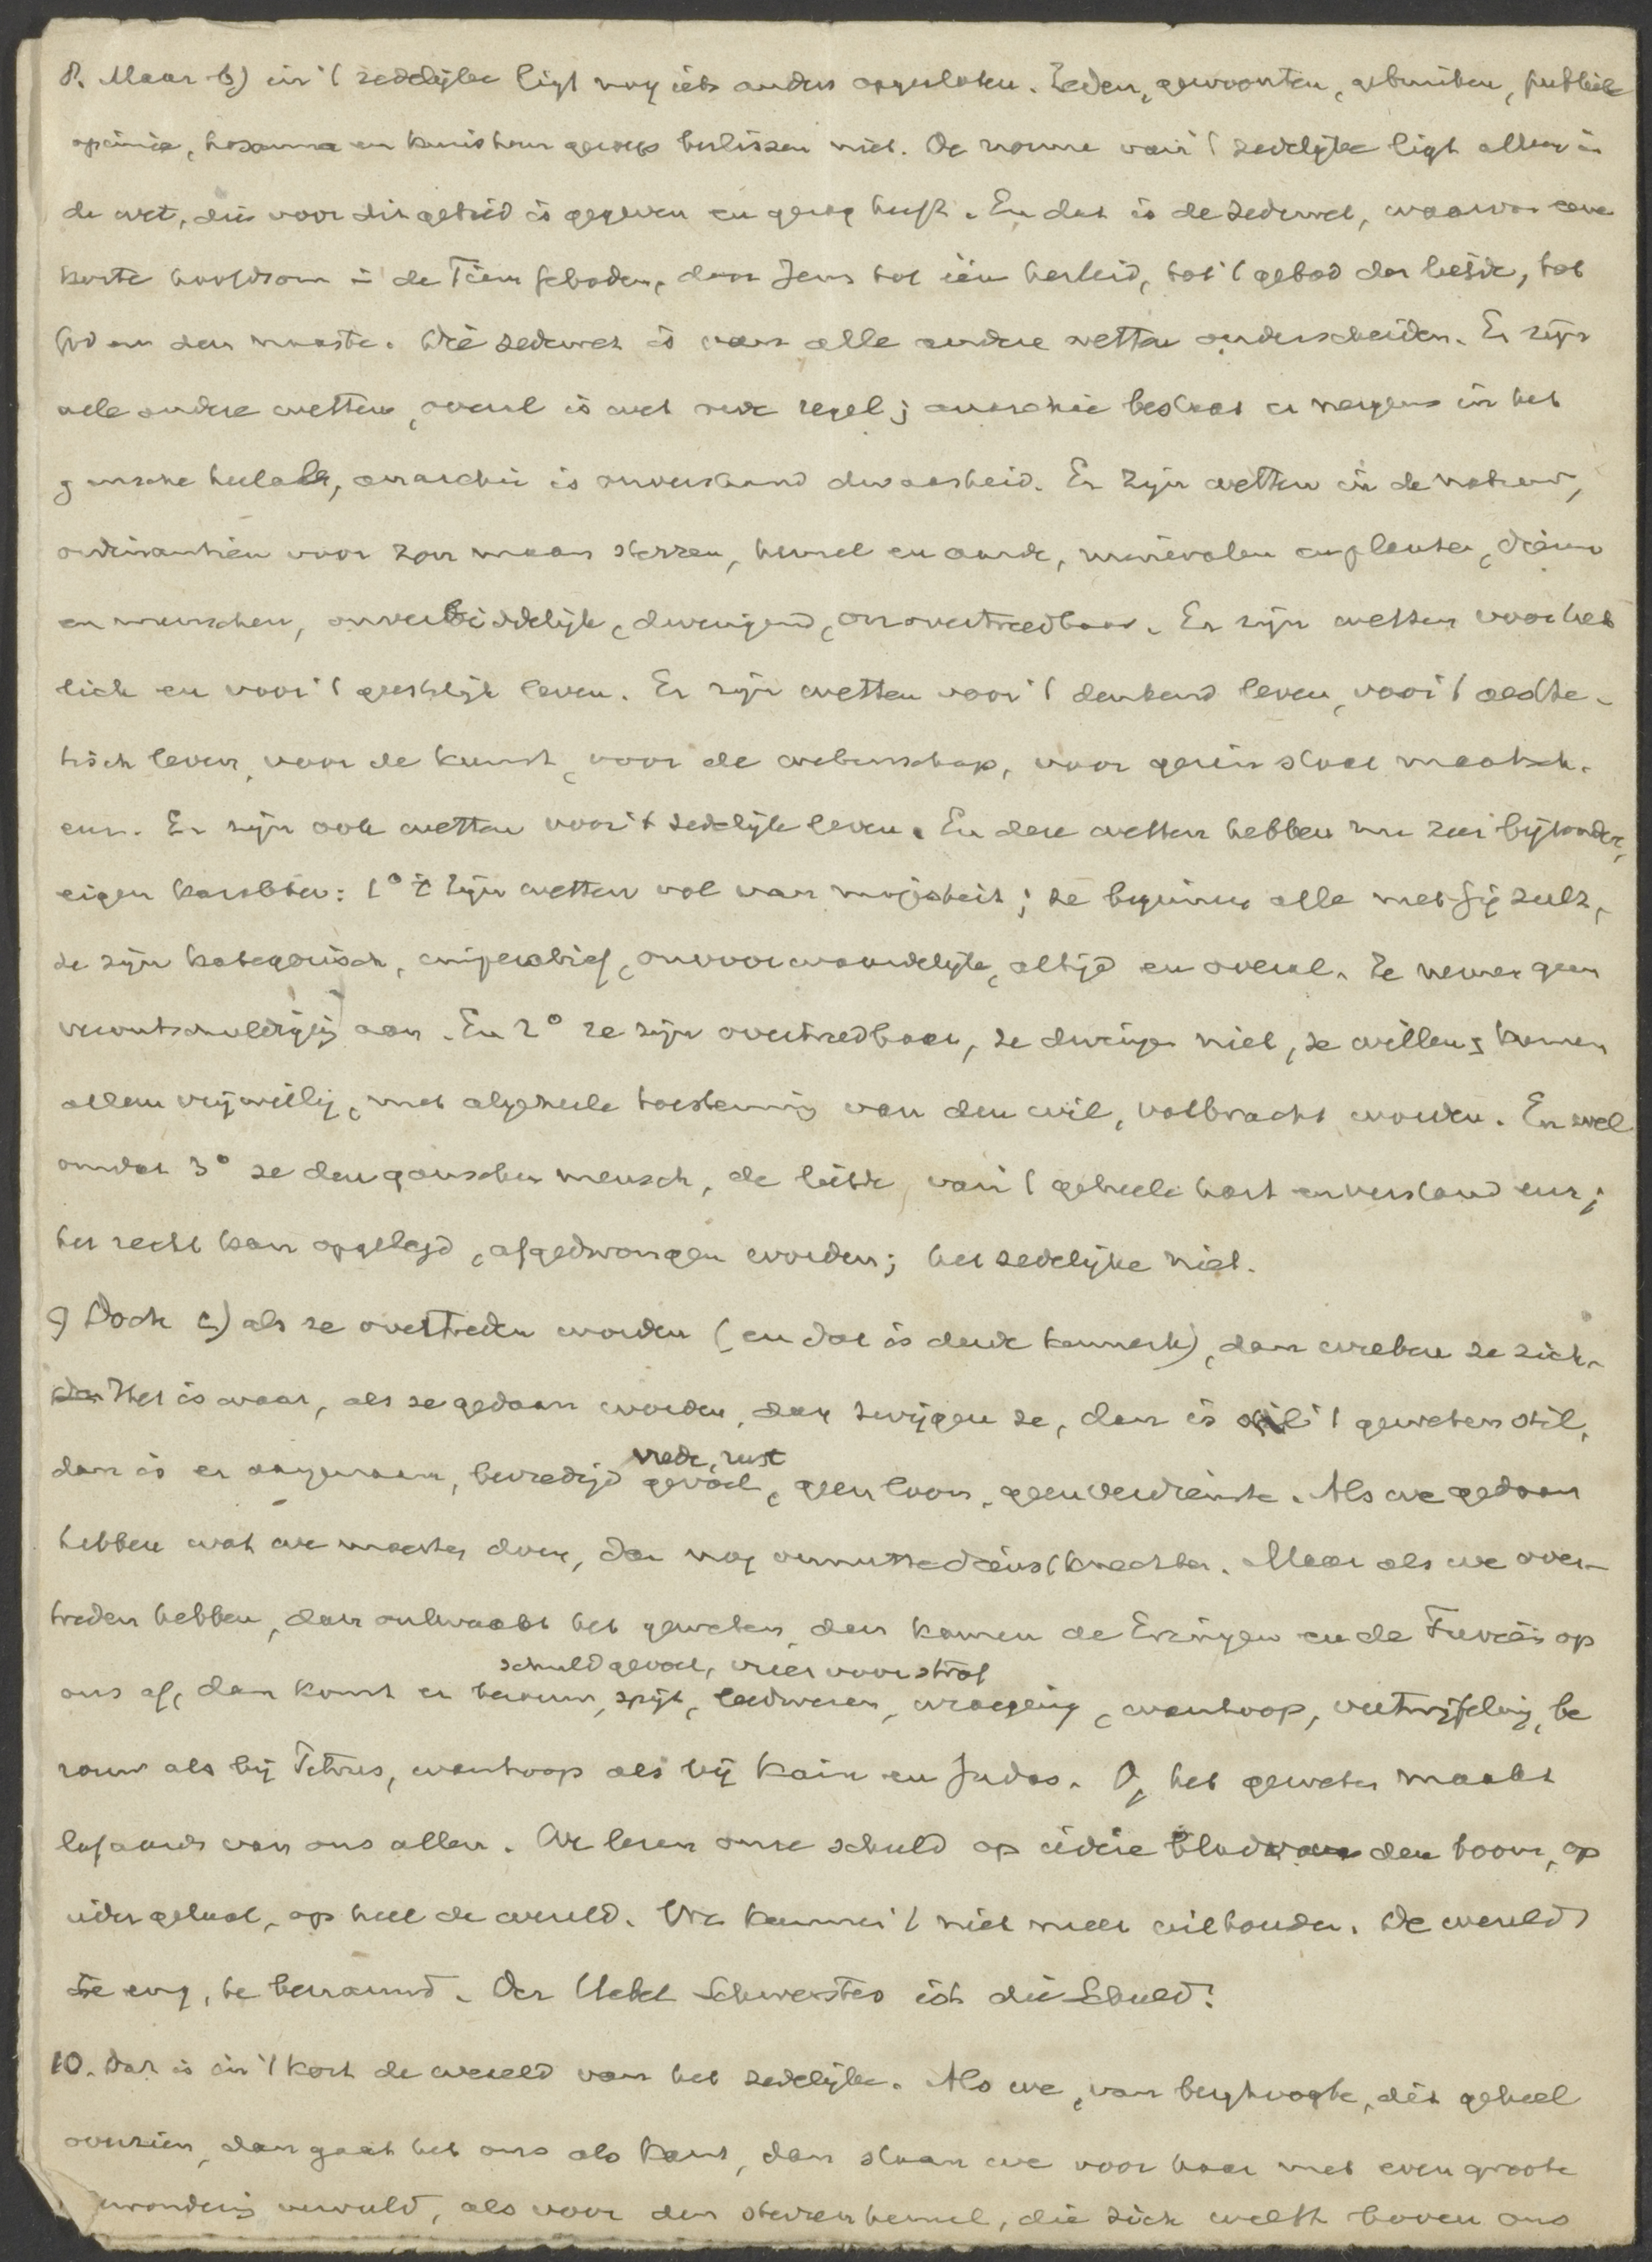 8. Maar b) in 't zedelijke ligt nog iets anders opgesloten. Zeden, gewoonten, gebruiken, publieke
opinie, hosanna en kruishem geroep beslissen niet. De norme van 't zedelijke ligt alleen in
de wet, die voor dit gebied is gegeven en gezag heeft. En dat is de zedewet, waarvan eene
korte hoofdsom in de Tien geboden, door Jezus tot één herleid, tot 't gebod der liefde, tot
God en den naaste. Die zedewet is van alle andere wetten onderscheiden. Er zijn
vele andere wetten, overal is wet orde regel; anarchie bestaat er nergens in het
gansche heelal, anarchie is onverstand dwaasheid. Er zijn wetten in de natuur,
ordinantien voor zon maan sterren, hemel en aarde, mineralen en planten, dieren
en menschen, onverbiddelijk, dwingend, onovertreedbaar. Er zijn wetten voor het
lich en voor 't geestelijk leven. Er zijn wetten voor 't denkend leven, voor 't aesthe-
tisch leven, voor de kunst, voor de wetenschap, voor gezin staat maatsch.
enz. Er zijn ook wetten voor 't zedelijk leven. En deze wetten hebben een zeer bijzonder,
eigen karakter: 1° 't zijn wetten vol van majesteit; ze beginnen alle met Gij zult,
ze zijn kategorisch, imperatief, onvoorwaardelijk, altijd en overal. Ze nemen geen
verontschuldiging aan. En 2° ze zijn overtreedbaar, ze dwingen niet, ze willen & kunnen
alleen vrijwillig, met algeheele toestemming van den wil, volbracht worden. En wel
omdat 3° ze den ganschen mensch, de liefde van 't geheele hart en verstand enz;
het recht kan opgelegd, afgedwongen worden; het zedelijke niet.
9) Doch c) als ze overtreden worden (en dat is derde kenmerk), dan wreken ze zich.
Het is waar, als ze gedaan worden, dan zwijgen ze, dan is 't geweten stil,
dan is er aangenaam, bevredigd gevoel, vrede, rust, geen loon, geen verdienste. Als we gedaan
hebben wat we moesten doen, dan nog onnutte dienstknechten. Maar als we over-
treden hebben, dan ontwaakt het geweten, dan komen de Erinyen en de Furiën op
schuldgevoel, vrees voor straf
ons af, dan komt er berouw, spijt, leedwezen, wroeging, wanhoop, vertwijfeling, be
rouw als bij Petrus, wanhoop als bij Kain en Judas. O, het geweten maakt
lafaards van ons allen. We lezen onze schuld op iedere blad van den boom, op
ieder gelaat, op heel de wereld. We kunnen 't niet meer uithouden. De wereld
te eng, te benauwd. Der Uebel Schwerstes ist die Schuld!
10. Dat is in 't kort de wereld van het zedelijke. Als we, van berghoogte, dit geheel
overzien, dan gaat het ons als Kant, dan staan we voor haar met even groote
wondering vervuld, als voor den sterrenhemel, die zich welft boven ons